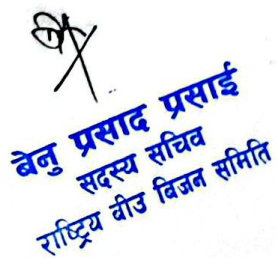 बेनु प्रसाद प्रसाई
सदस्य सचिव
राष्ट्रिय वीउ बिजन समिति